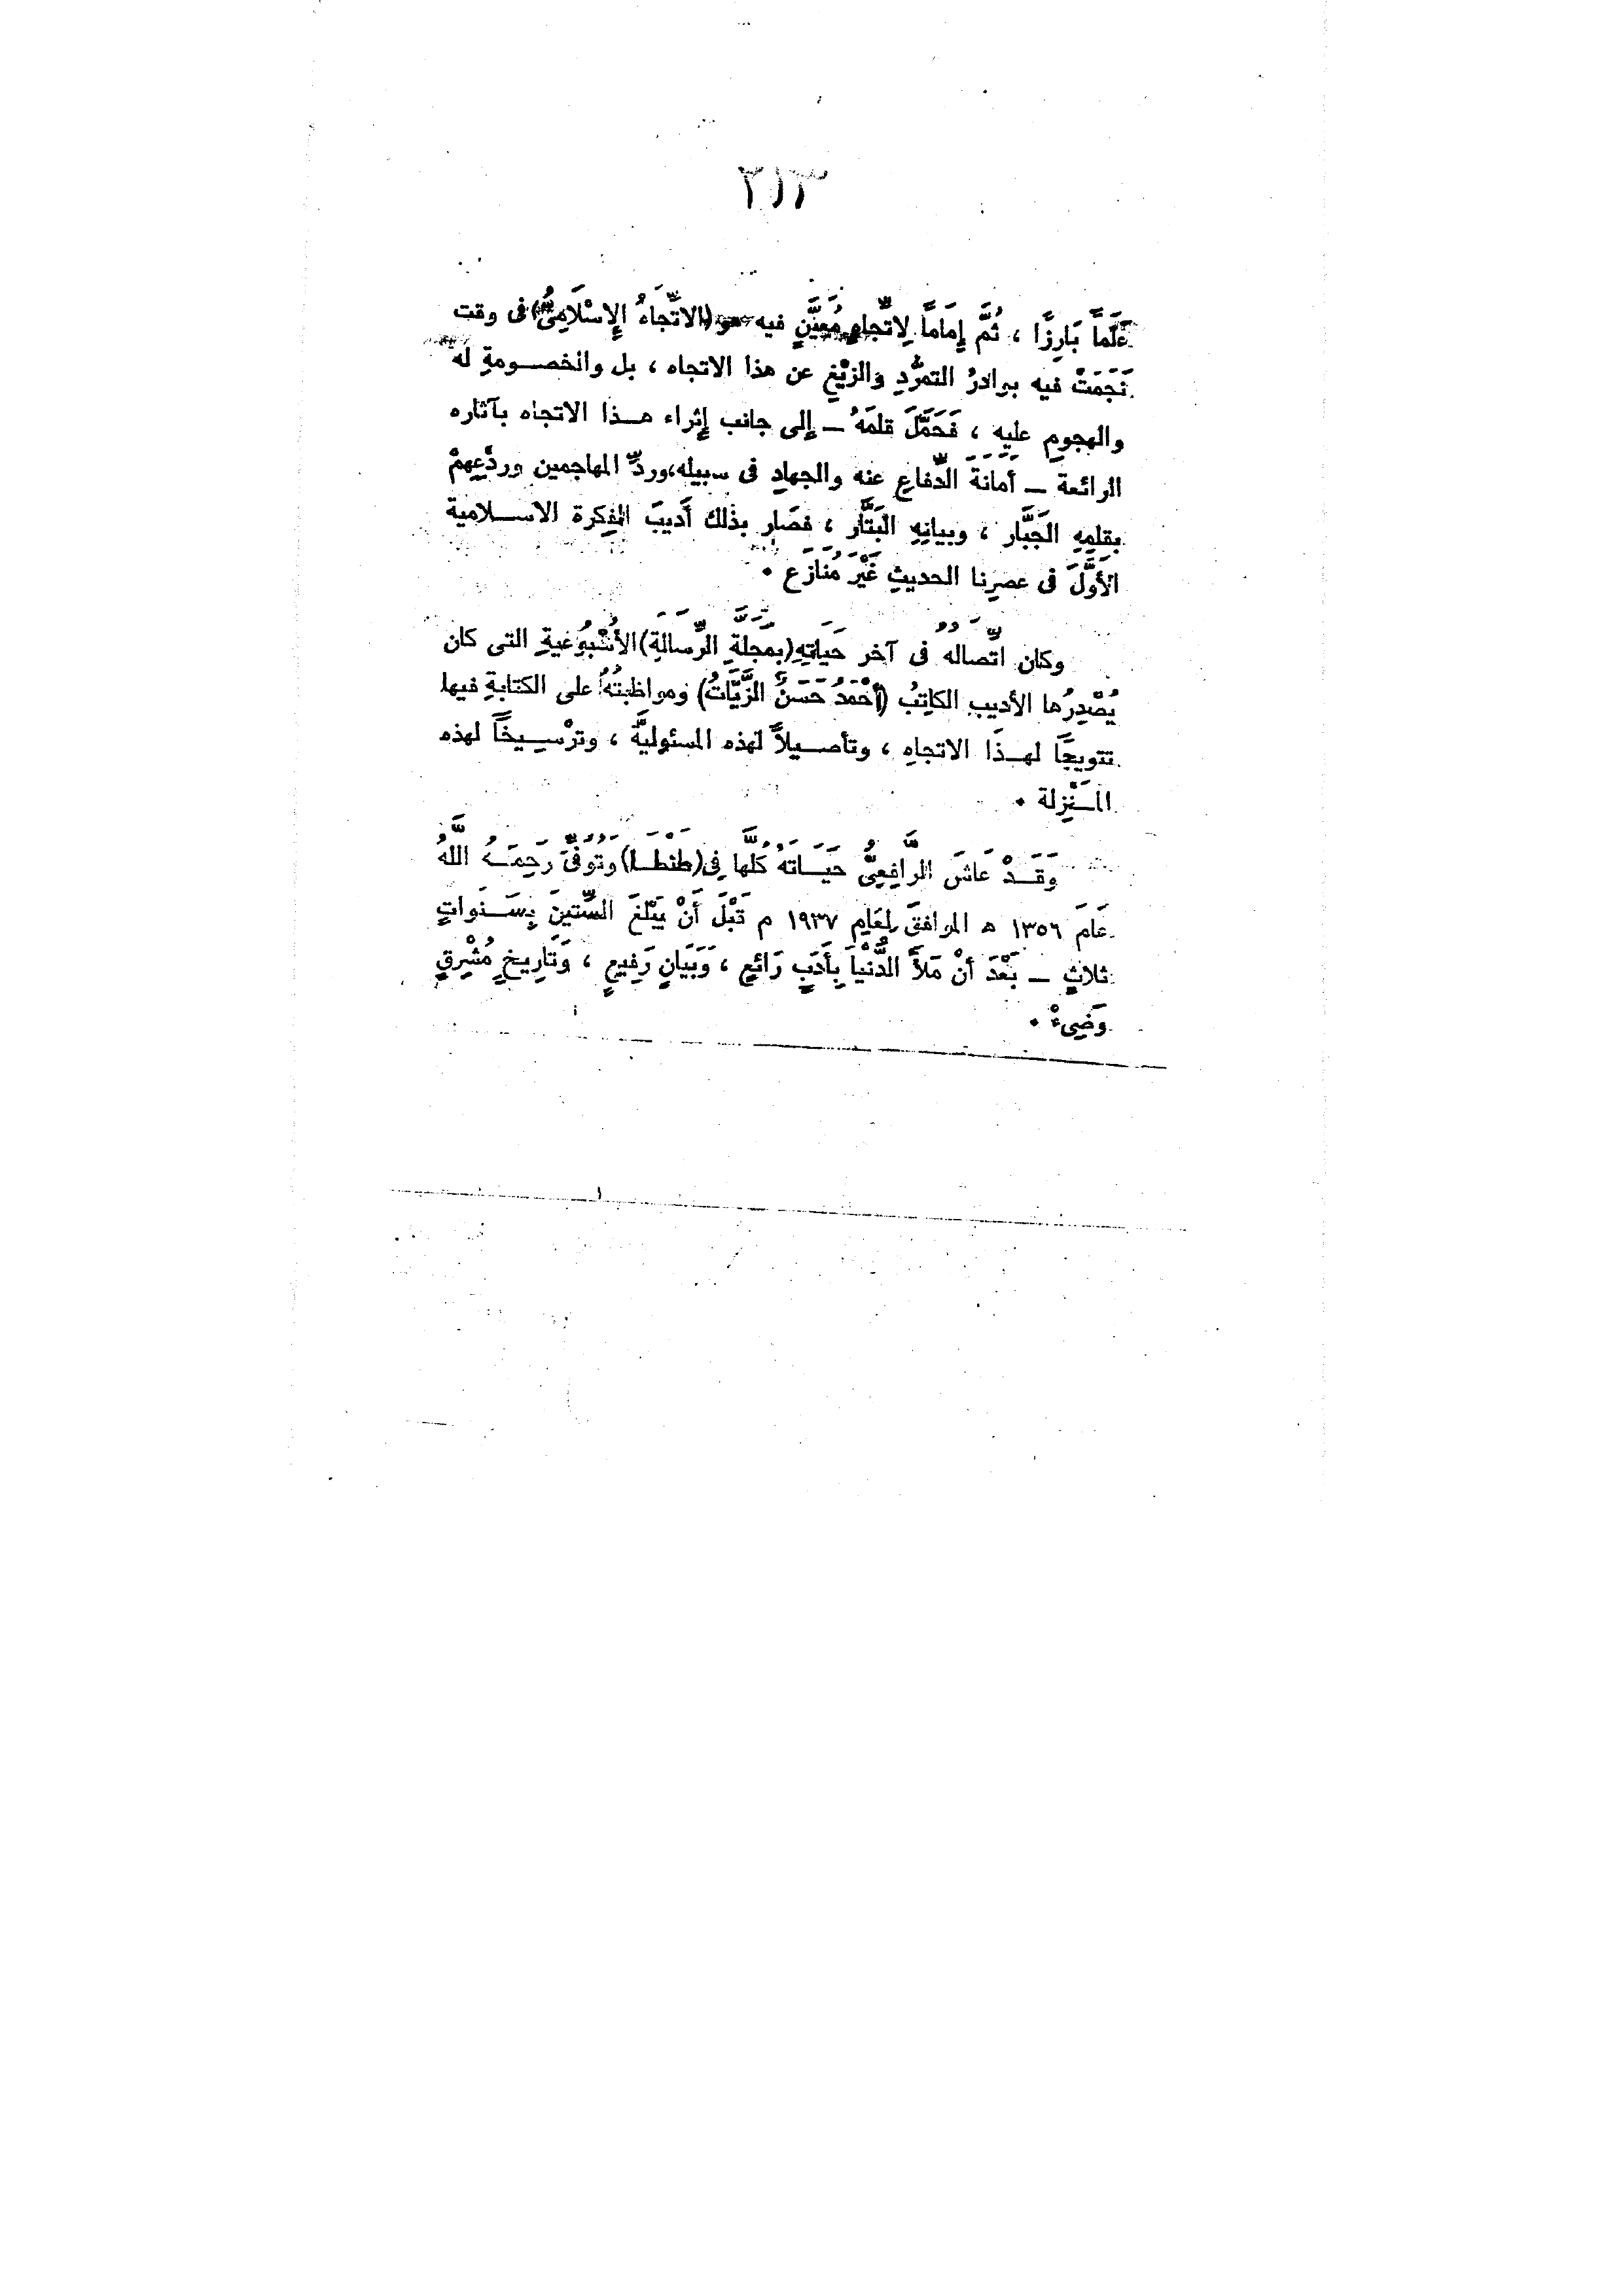 ٣١٣
عَلَماً بَارِزًا ، ثُمَّ إِمَاماً لِاتِّجاهٍ مُعَيَّنٍ فيه هو (الاتِّجَاهُ الإِسْلَامِىُّ) فى وقت
نَجَمَتْ فيه بوادرُ التمرُّدِ والزَيْغِ عن هذا الاتجاه ، بل والخصـومةِ له
والهجومِ عليه ، فَحَمَّلَ قلمَهُ ــ إلى جانب إثراء هـذا الاتجاه بآثاره
الرائعة ــ أمانَةَ الدِّفاعِ عنه والجهادِ فى سبيله،وردِّ المهاجمين وردْعِهِمْ
بقلمِهِ الجَبَّار ، وبيانِهِ البَتَّار ، فصَار بذلك أَديبَ الفِكرة الاسـلامية
الأَوَّلَ فى عصرِنا الحديثِ غَيْرَ مُنَازَع .
وكان اتِّصالُهُ فى آخر حَياتِهِ (بمَجَلَّةِ الرِّسَالَةِ) الأُسْبُوعيةِ التى كان
يُصْدِرُها الأديب الكاتِبُ (أَحْمَدُ حَسَنُ الزَّيَّاتُ) ومواظبتُهُ على الكتابةِ فيها
تتويجًا لهـذَا الاتجاهِ ، وتأصـيلاً لهذه المسئوليَّة ، وترْسـيخًا لهذه
المَـنْزِلة .
وَقَـدْ عَاشَ الرَّافِعِىُّ حَيَـاتَهُ كُلَّها فِى (طَنْطَـا) وَتُوُفِّىَ رَحِمَـهُ اللَّهُ
عَامَ ١٣٥٦ هـ الموافقَ لِعَامِ ١٩٣٧ م قَبْلَ أَنْ يَبْلغَ السِّتينَ بِسَـنَواتٍ
ثلاثٍ ــ بَعْدَ أَنْ مَلأَ الدُّنْيَا بِأَدَبٍ رَائعٍ ، وَبَيَانٍ رَفِيعٍ ، وَتَارِيخٍ مُشْرِقٍ
وَضِىءْ .